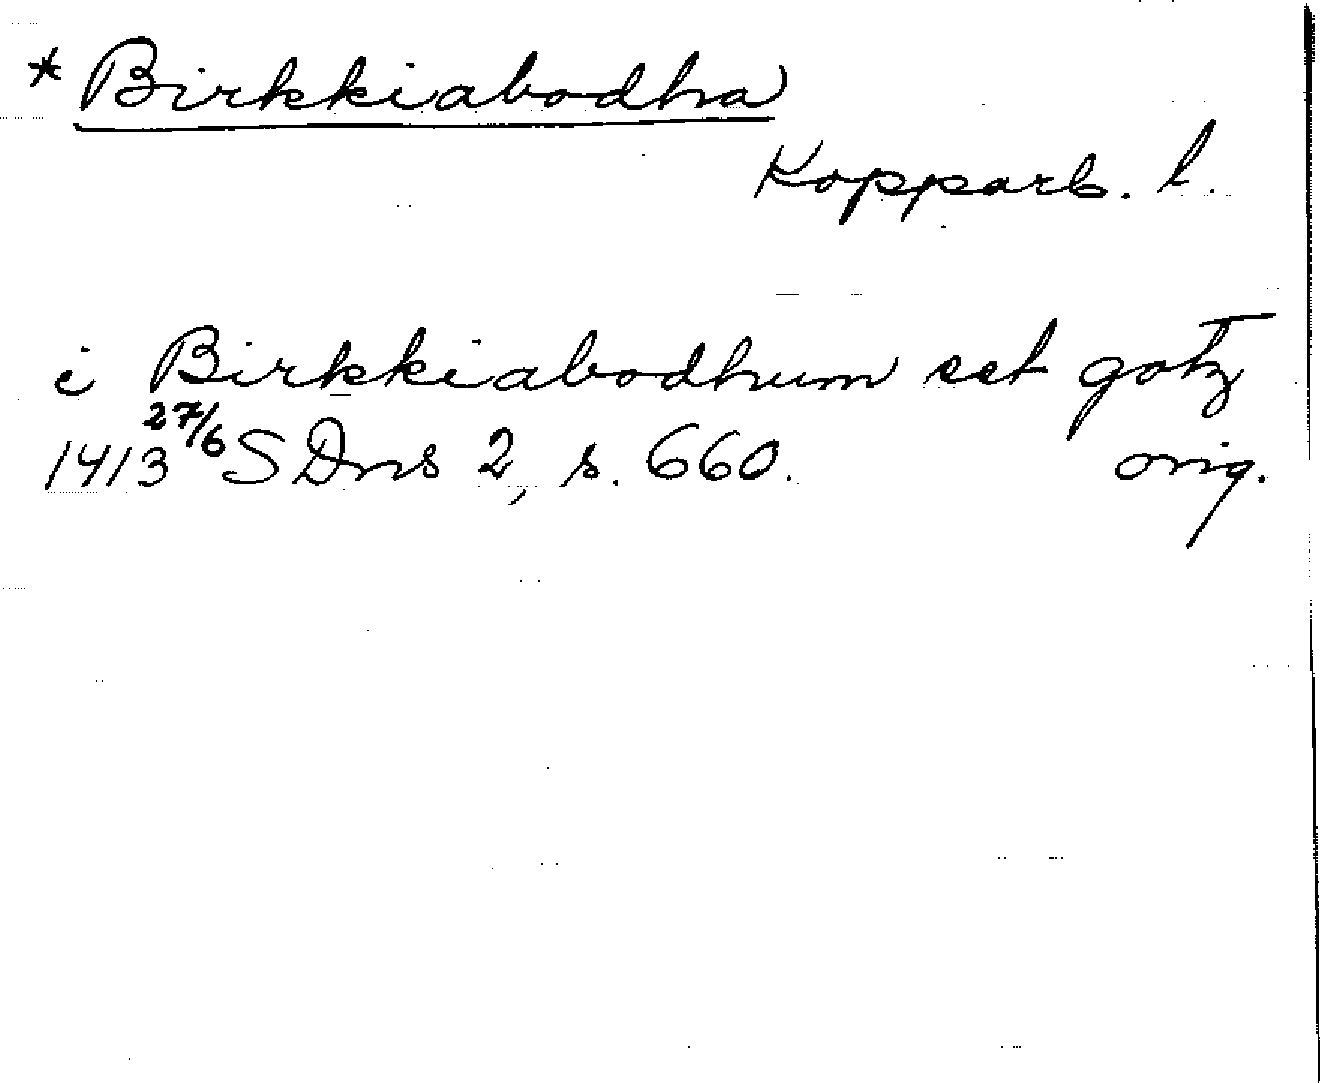 * Birkkiabodha
Kopparb. l.
i Birkkiabodhum eet gotz
1413 27/6 SDns 2, s. 660. orig.